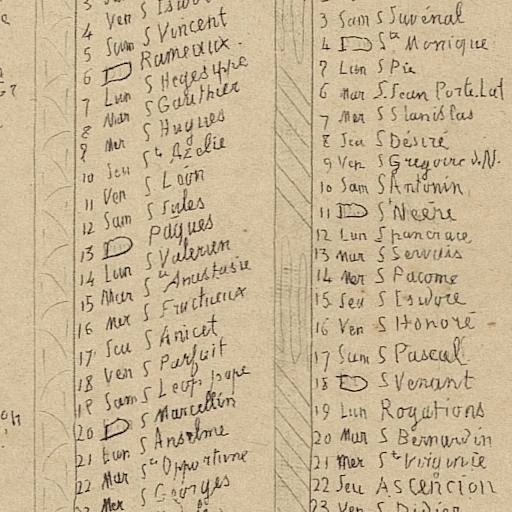 4 Ven S Vincent
5 Sam
6 D Rameaux.
7 Lun S Hegesippe
8 Mar S Gauthier
9 Mer S Hugues
10 Jeu Ste Azelie
11 Ven S Léon
12 Sam S Jules
13 D Pâques
14 Lun S Valerien
15 Mar Ste Anastasie
16 Mer S Fructueux
17 Jeu S Anicet
18 Ven S Parfait
19 Sam S Leon pape
20 D S Marcellin
21 Lun S Anselme
22 Mar Ste Opportune
23 Mer S Georges
3 Sam S Juvénal
4 D Ste Monique
7 Lun S Pie
6 Mar S Jean Porte.Lat
7 Mer S Stanislas
8 Jeu S Désiré
9 Ven S Gregoire d.N.
10 Sam S Antonin
11 D S Neére
12 Lun S pancrace
13 Mar S Servais
14 Mer S Pacome
15 Jeu S Isidore
16 Ven S Honoré
17 Sam S Pascal
18 D S Venant
19 Lun Rogations
20 Mar S Bernardin
21 Mer Ste Virginie
22 Jeu Ascencion
23 Ven S Didier